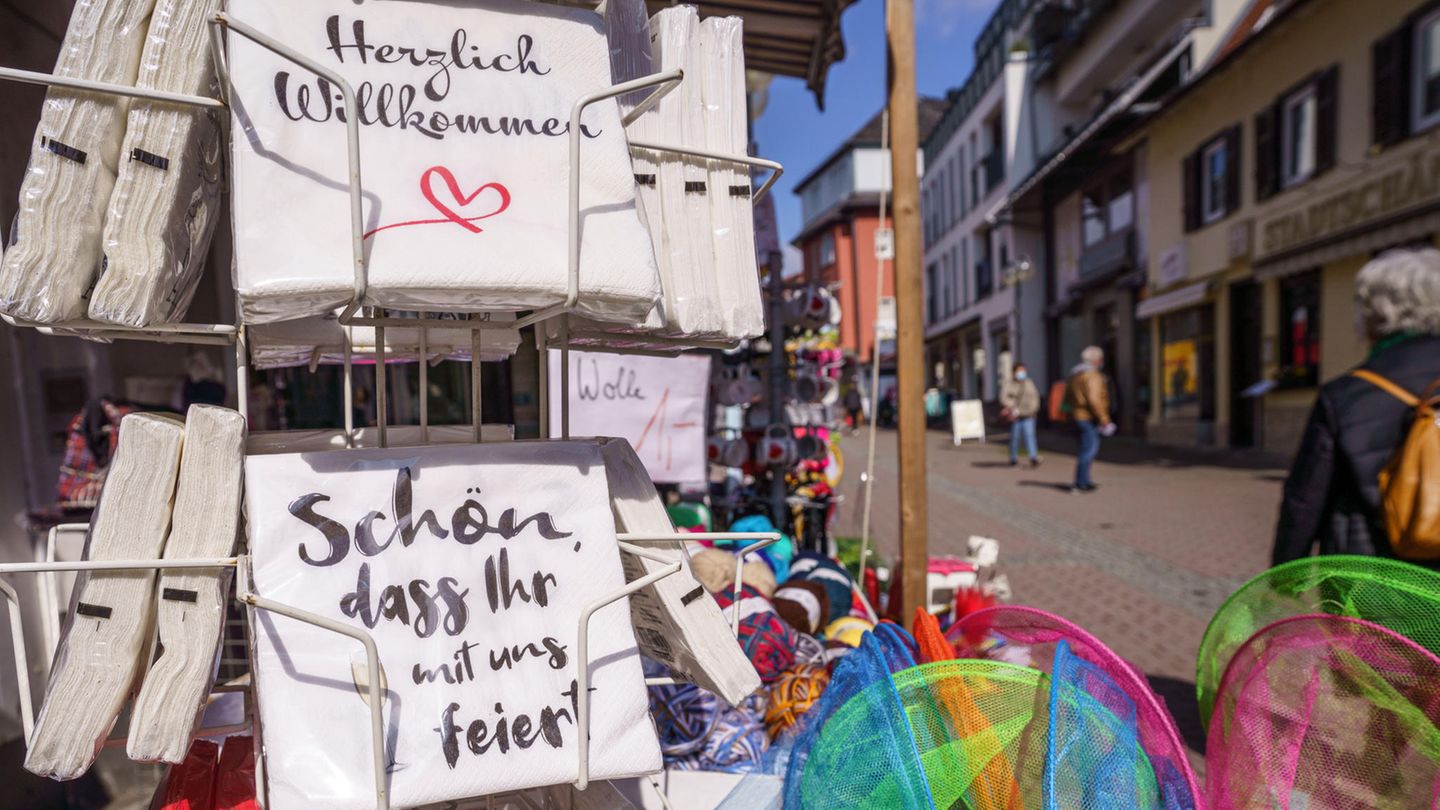 Herzlich
Willkommen
Wolle
1.-
Schön,
dass Ihr
mit uns
feiert